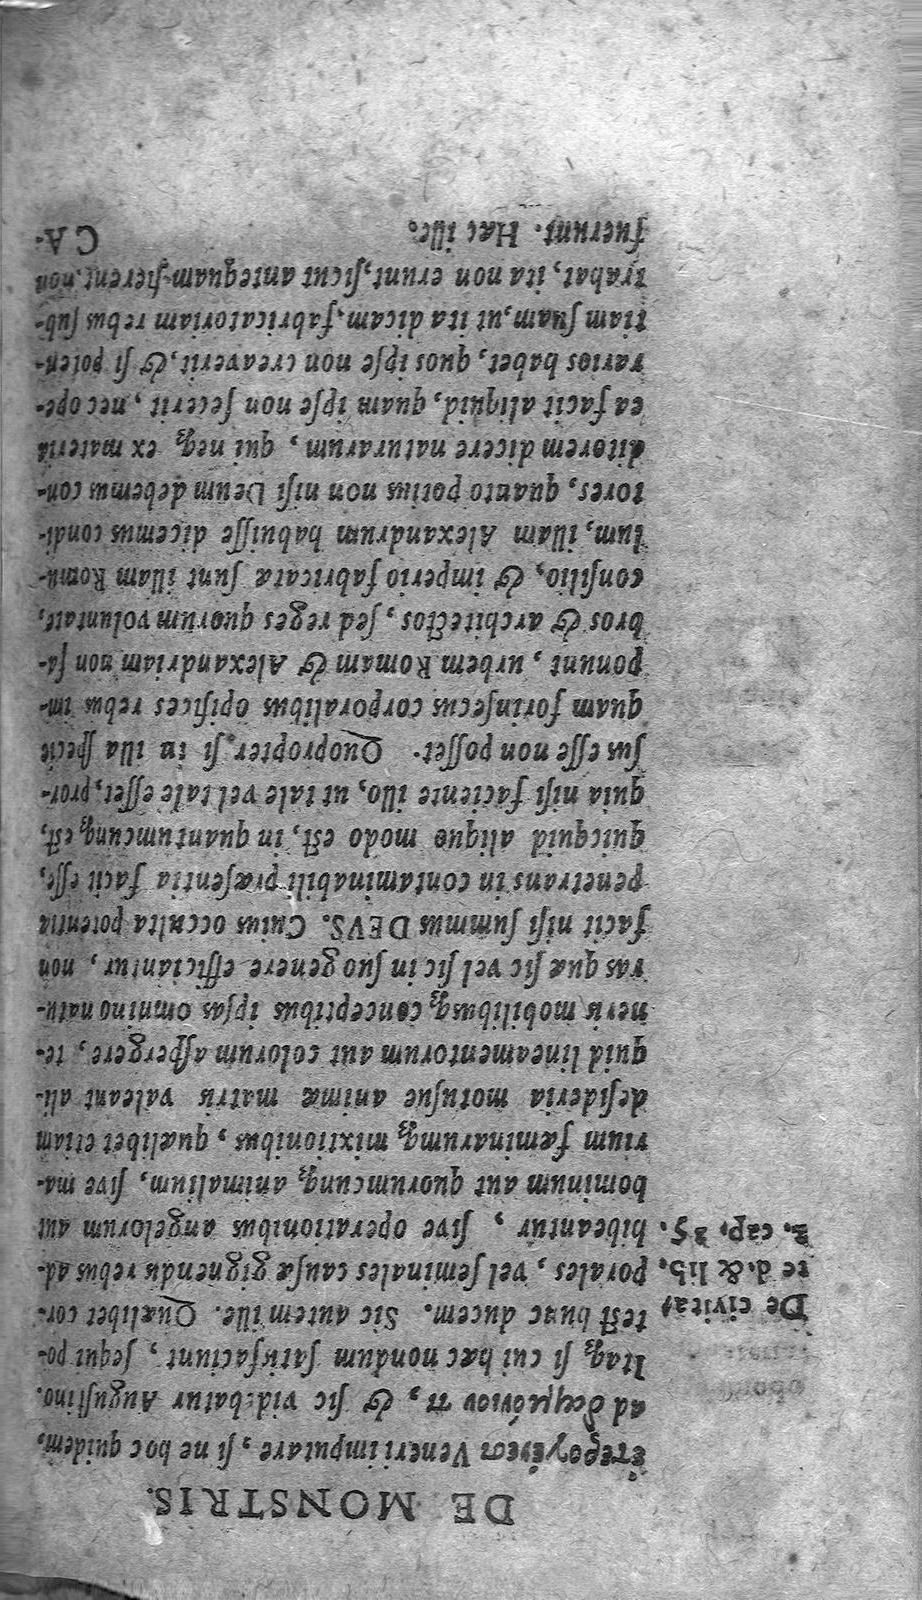 DE MONSTRIS.
ἑτερογένεσι Veneri imputare, si ne hoc quidem,
ad δαιμόνιον τι, & sic videbatur Augustino.
Itaq; si cui hæc nondum satisfaciunt, sequi po-
test hunc ducem. Sic autem ille. Quælibet cor-
De civita-
porales, vel seminales causæ gignendis rebus ad-
te d. & lib.
hibeantur, sive operationibus angelorum aut
2. cap. 25.
hominum aut quorumcunq; animalium, sive ma-
rium fæminarumq; mixtionibus, quælibet etiam
desideria motusue animæ matris valeant ali-
quid lineamentorum aut colorum aspergere, te-
neris mobilibusq; conceptibus ipsas omnino natu-
ras quæ sic vel sic in suo genere efficiantur, non
facit nisi summus DEVS. Cuius occulta potentia
penetrans in contaminabili præsentia facit esse,
quicquid aliquo modo est, in quantumcunq; est,
quia nisi faciente illo, ut tale vel tale esset, pror-
sus esse non posset. Quopropter si in illa specie
quam forinsecus corporalibus opifices rebus im-
ponunt, urbem Romam & Alexandriam non fa-
bros & architectos, sed reges quorum voluntate,
consilio, & imperio fabricatæ sunt illam Romu-
lum, illam Alexandrum habuisse dicemus condi-
tores, quanto potius non nisi Deum debemus con-
ditorem dicere naturarum, qui neq; ex materia
ea facit aliquid, quam ipse non fecerit, nec ope-
rarios habet, quos ipse non creaverit, & si poten-
tiam suam, ut ita dicam, fabricatoriam rebus sub-
trahat, ita non erunt, sicut antequam fierent non
fuerunt. Hæc ille.
CA-